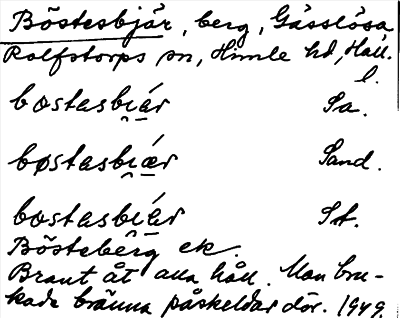 Böstesbjär, berg, Gässlösa
Rolfstorps sn, Himle hd, Hall. l.
bøstasbi̯ǽr Sa.
bøstasbi̯ǽr Sand.
bøstasbi̯ǽr St.
Böstaberg ek.
Brant åt alla håll. Man bru-
kade bränna påskeldar där. 1949.